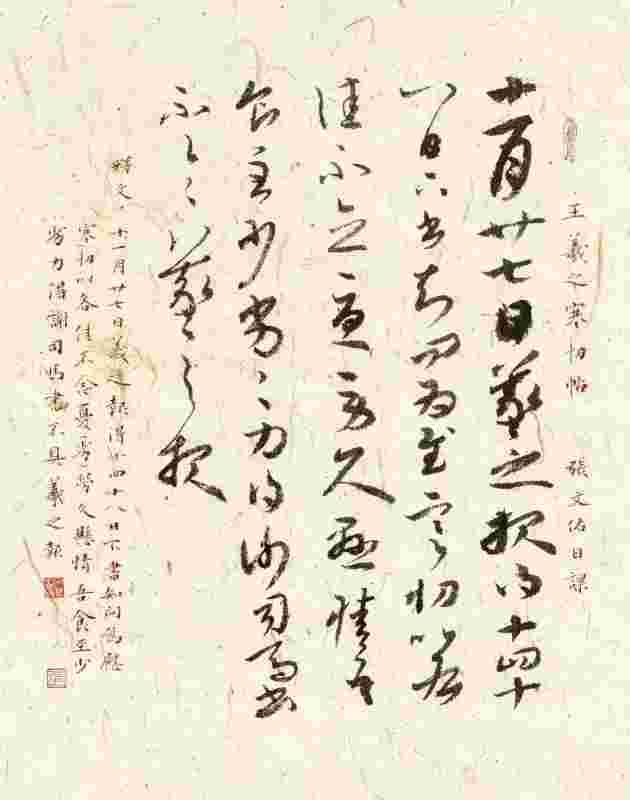 王羲之寒切帖 張文佑日課
十一月廿七日羲之報得十四十
八日二書知問為慰寒切比各
佳不念憂勞久懸情吾
食至少劣劣力因謝司馬書
不具羲之報
釋文 十一月廿七日羲之報得十四十八日下書知問為慰
寒切比各佳不念憂勞久懸情吾食至少
劣力得謝司馬書不具羲之報